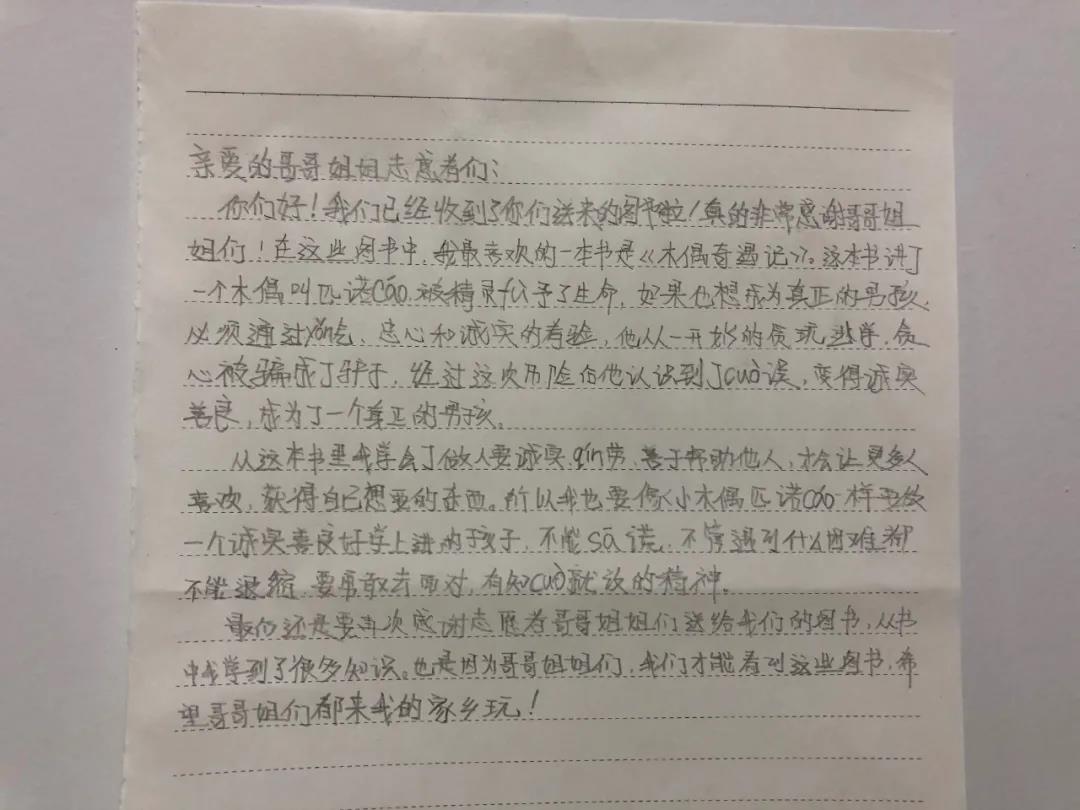 亲爱的哥哥姐姐志愿者们：
你们好！我们已经收到了你们送来的图书啦！真的非常感谢哥哥姐
姐们！在这些图书中，我最喜欢的一本书是《木偶奇遇记》。这本书讲了
一个木偶叫匹诺cáo，被精灵fù予了生命，如果他想成为真正的男孩，
必须通过、忠心和诚实的考验，他从一开始的贪玩逃学，贪
心被骗成了驴子，经过这次历险后他认识到了cuò误，变得诚实
善良，成为了一个真正的男孩。
从这本书里我学会了做人要诚实，qín劳，善于帮助他人，才会让更多人
喜欢，获得自己想要的东西。所以我也要像小木偶匹诺cáo一样要做
一个诚实善良好学上进的孩子，不能sā谎，不管遇到什么困难都
不能退缩，要勇敢去面对，有知cuò就改的精神。
最后还是要再次感谢志愿者哥哥姐姐们送给我们的图书，从书
中我学到了很多知识。也是因为哥哥姐姐们，我们才能看到这些图书，希
望哥哥姐们都来我的家乡玩！